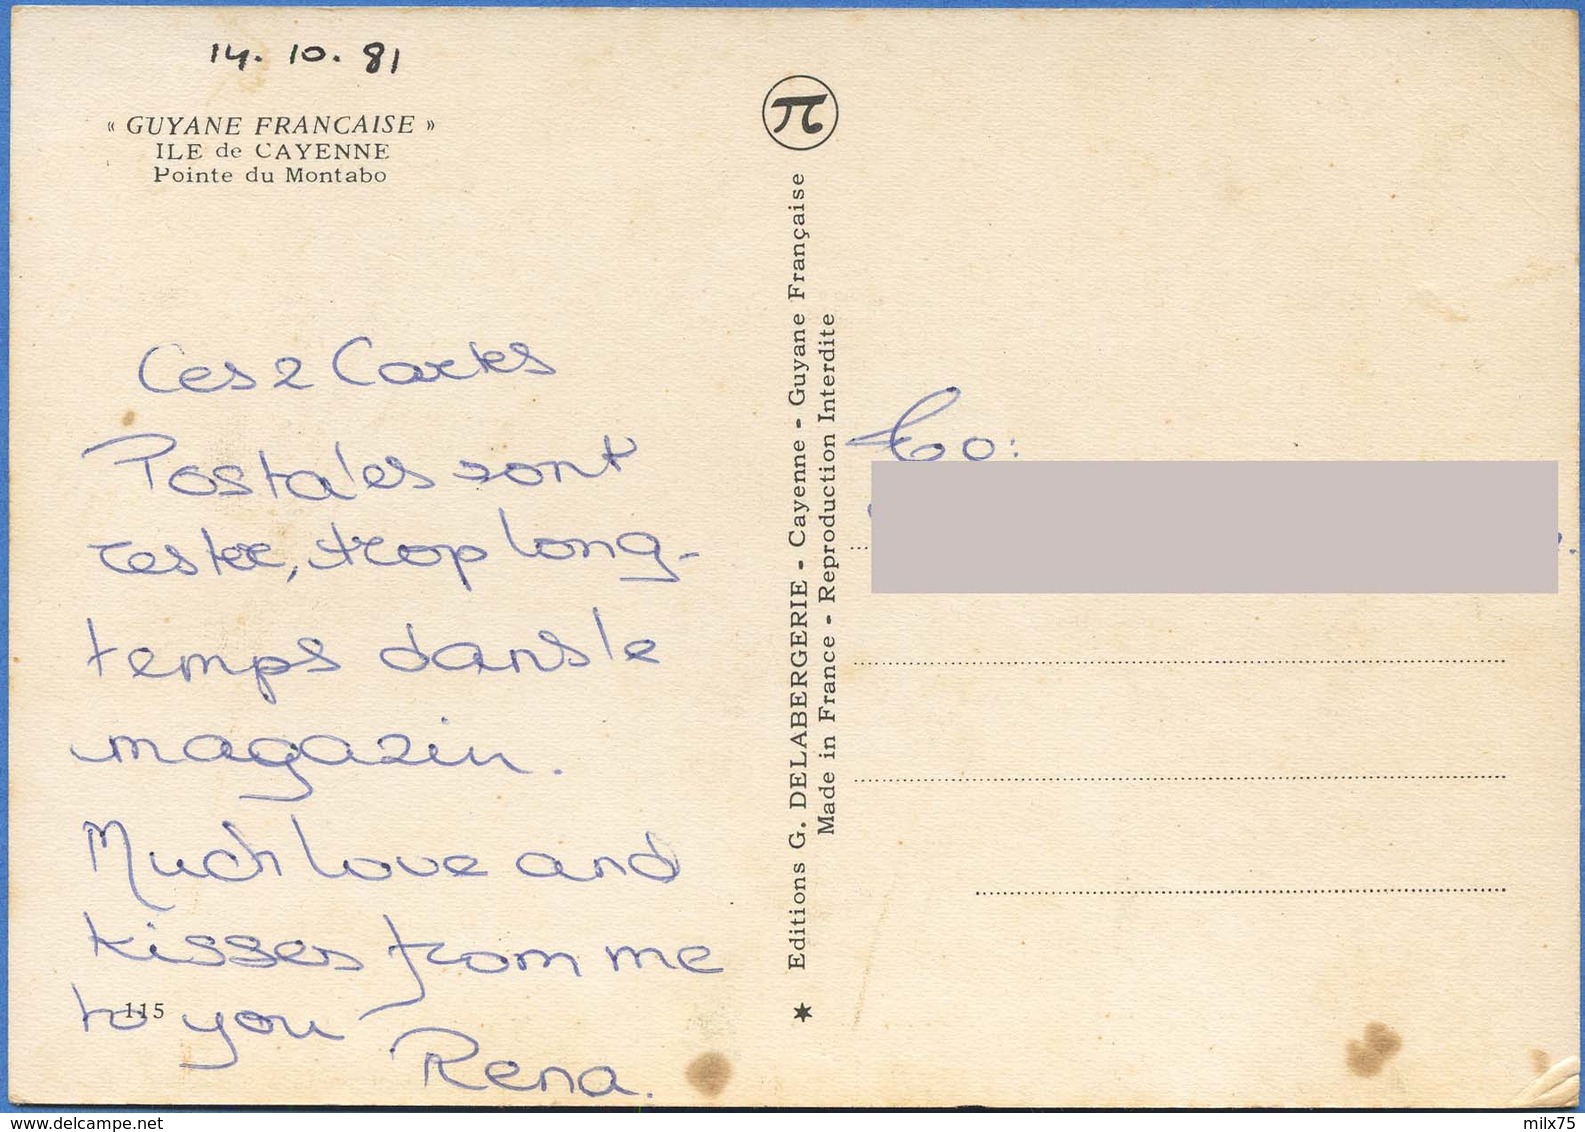 14. 10. 81
« GUYANE FRANCAISE »
ILE de CAYENNE
Pointe du Montabo
Ces 2 Cartes
Postales sont
rester, trop long-
temps dans le
magazin.
Much love and
kisses from me
to you
Rena.
115
π
Editions G. DELABERGERIE - Cayenne - Guyane Française
Made in France - Reproduction Interdite
To:
delcampe.net
milx75